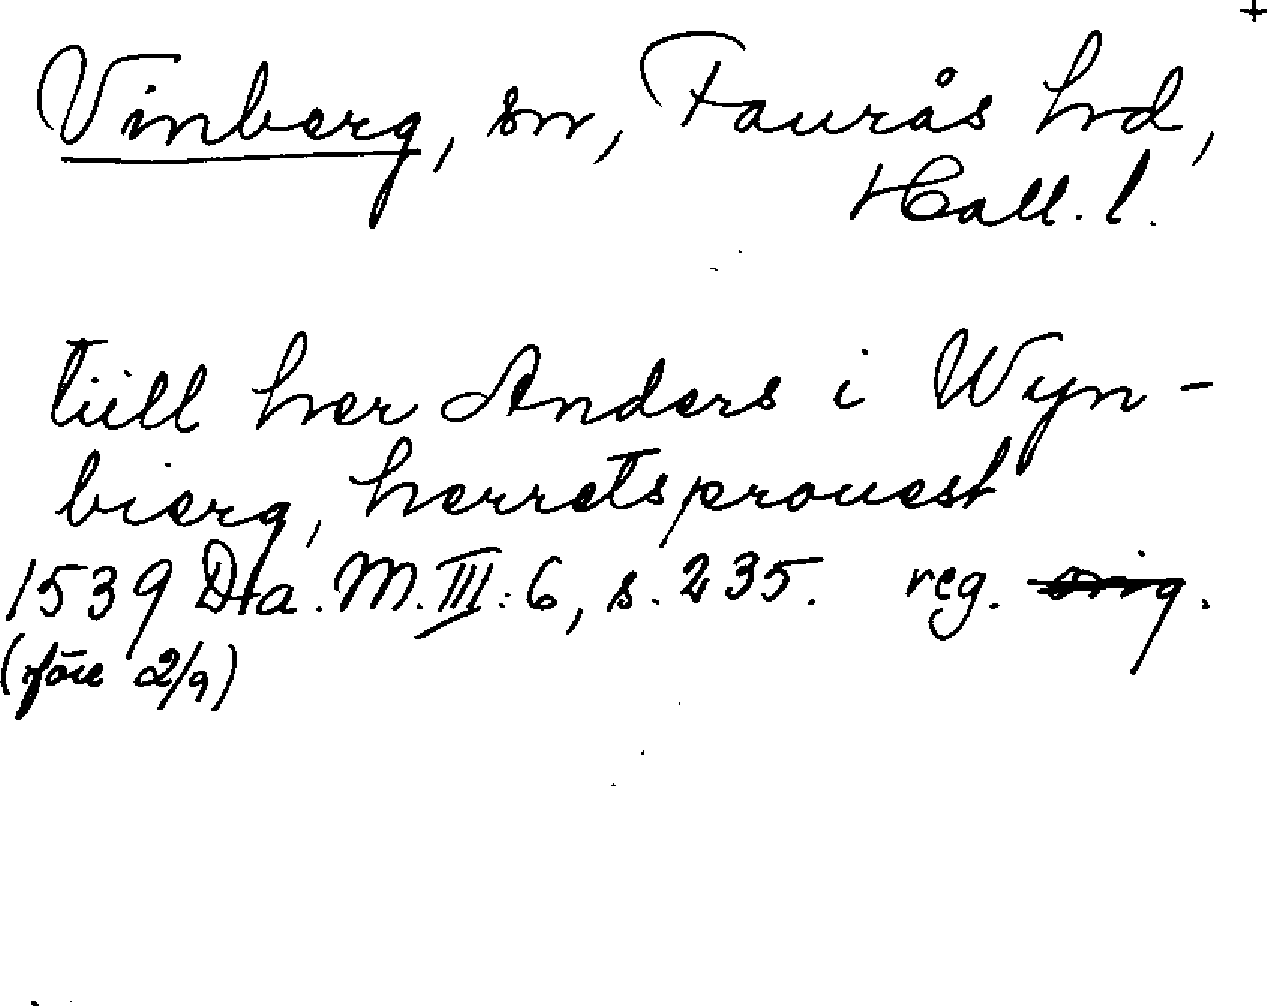 +
Vinberg, sn, Faurås hrd,
Hall. l.
tiill her Anders i Wyn-
bierg, herretsprouest
1539 Dta. M. III: 6, s. 235. reg. orig.
(före 2/9)